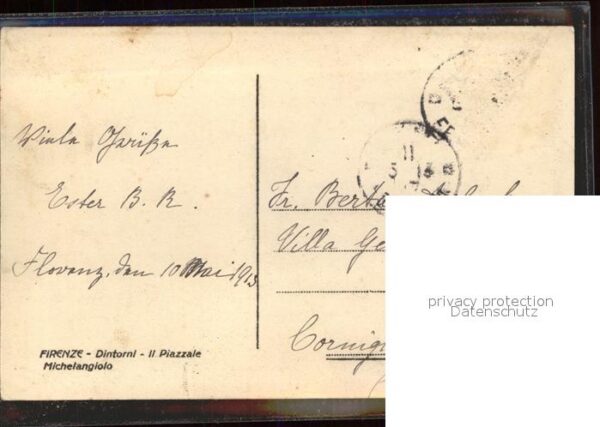 Viele Grüße
Ester B. R.
Florenz, den 10 Mai 1913
FIRENZE - Dintorni - Il Piazzale
Michelangiolo
11
5 13
Fr. Berta
Villa
privacy protection
Datenschutz